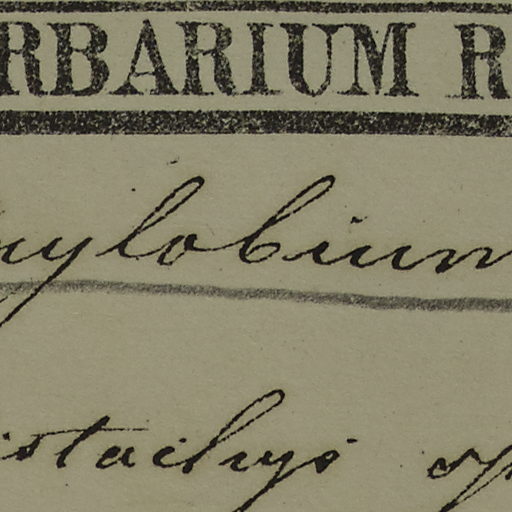 RBARIUM R
hylobium
istachys sp